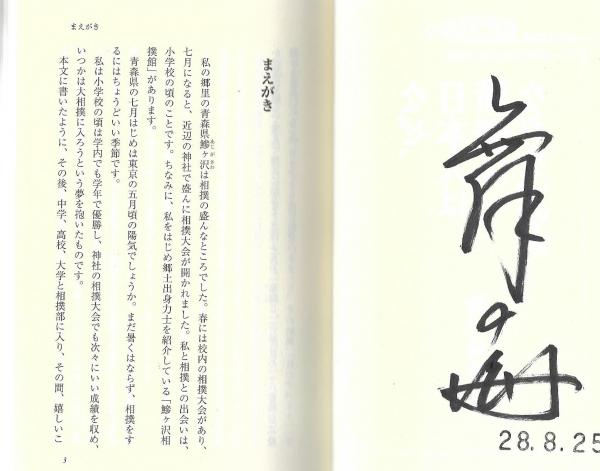 舞の海
28.8.25
まえがき
まえがき
私の郷里の青森県鰺ヶ沢は相撲の盛んなところでした。春には校内の相撲大会があり、
あじがさわ
七月になると、近辺の神社で盛んに相撲大会が開かれました。私と相撲との出会いは、
小学校の頃のことです。ちなみに、私をはじめ郷土出身力士を紹介している「鰺ヶ沢相
撲館」があります。
青森県の七月はじめは東京の五月頃の陽気でしょうか。まだ暑くはならず、相撲をす
るにはちょうどいい季節です。
私は小学校の頃は学内でも学年で優勝し、神社の相撲大会でも次々にいい成績を収め、
いつかは大相撲に入ろうという夢を抱いたものです。
本文に書いたように、その後、中学、高校、大学と相撲部に入り、その間、嬉しいこ
3